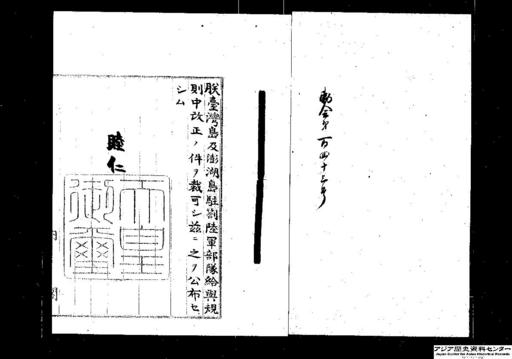 勅令第百四十三号
朕臺灣島及澎湖島駐剳陸軍部隊給與規
則中改正ノ件ヲ裁可シ茲ニ之ヲ公布セ
シム
睦仁
天皇
御璽
内閣
アジア歴史資料センター
Japan Center for Asian Historical Records